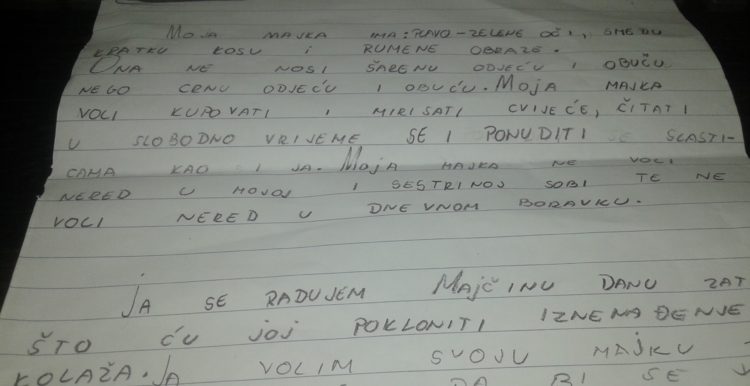 MOJA MAJKA IMA: PLAVO-ZELENE OČI, SMEĐU
KRATKU KOSU I RUMENE OBRAZE.
ONA NE NOSI ŠARENU ODJEĆU I OBUĆU
NEGO CRNU ODJEĆU I OBUĆU. MOJA MAJKA
VOLI KUPOVATI I MIRISATI CVIJEĆE, ČITATI
U SLOBODNO VRIJEME SE I PONUDITI SE SLASTI-
CAMA KAO I JA. MOJA MAJKA NE VOLI
NERED U MOJOJ I SESTRINOJ SOBI TE NE
VOLI NERED U DNEVNOM BORAVKU.
JA SE RADUJEM MAJČINU DANU ZAT
ŠTO ĆU JOJ POKLONITI IZNENAĐENJE
KOLAŽA. JA VOLIM SVOJU MAJKU
DA BI SE